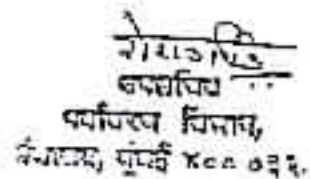 उपसचिव
पर्यावरण विभाग,
मंत्रालय, मुंबई ४०० ०३२.